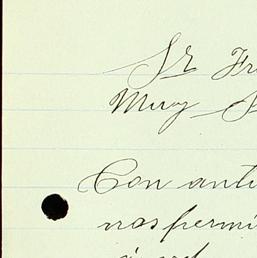 Sr Fr
Muy S
Con anti
nos permi